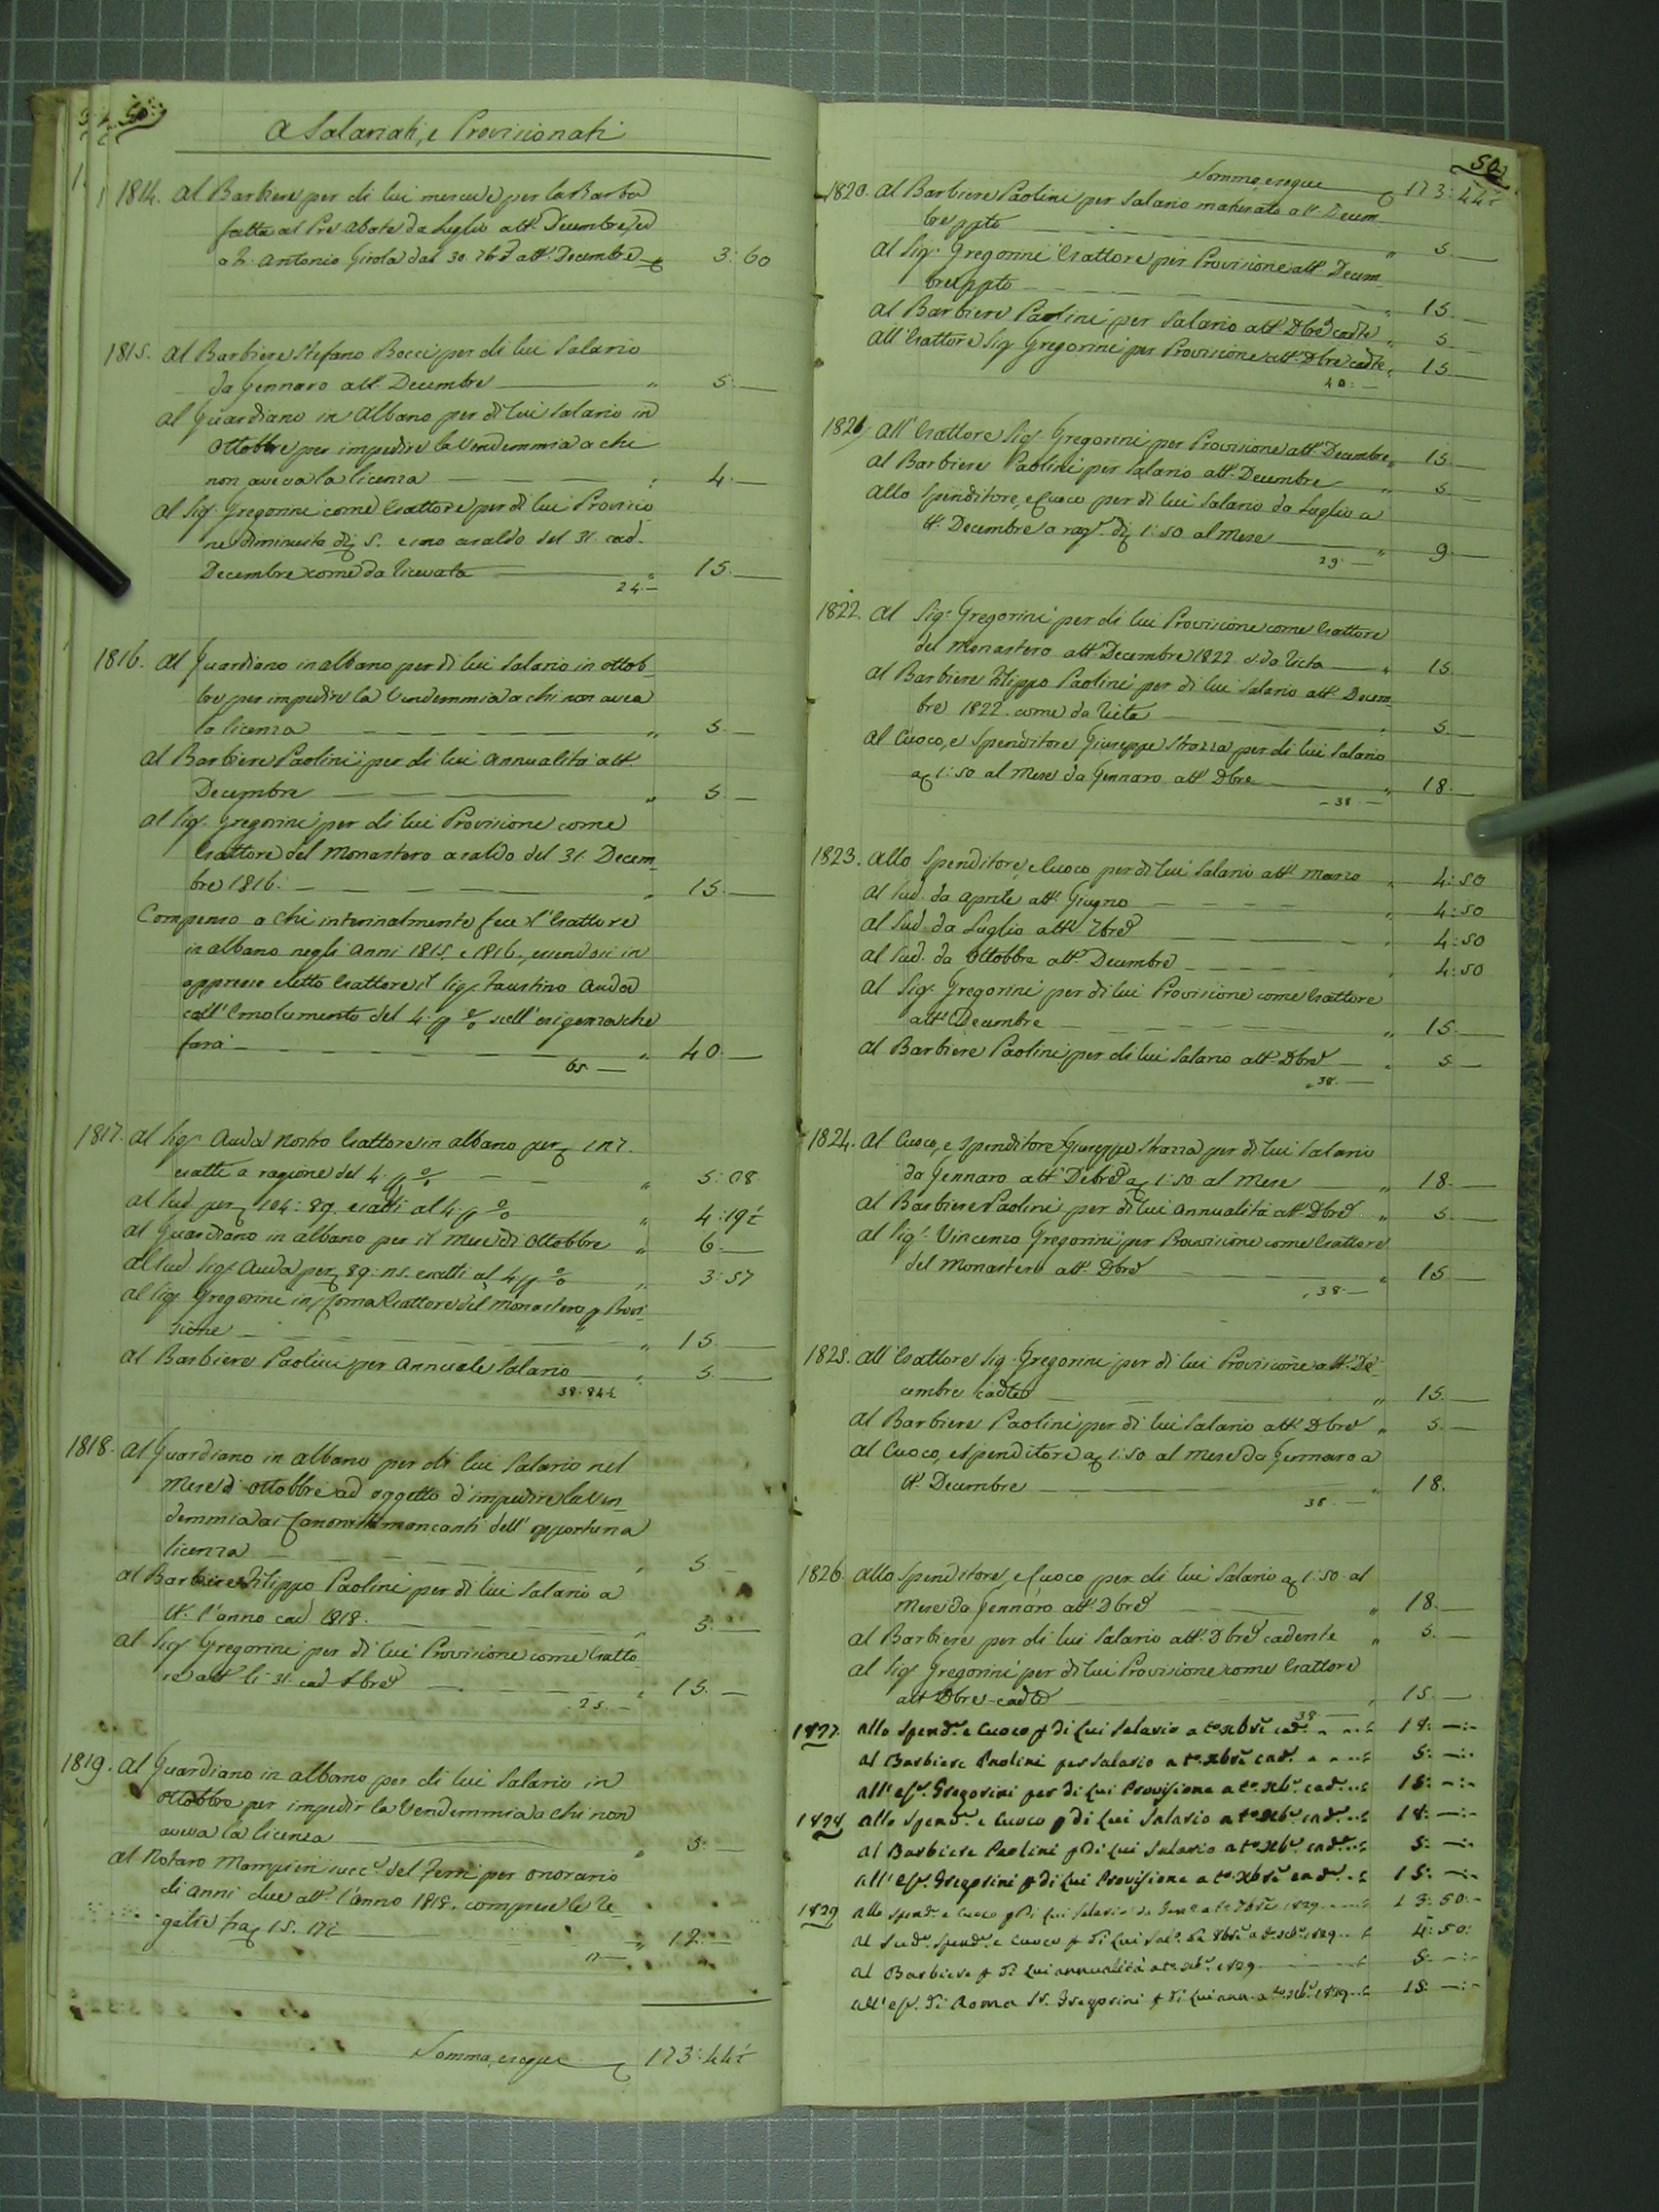 50.
A Salariati, e Provisionati
1814. Al Barbiere per di lui mercede per la Barba
fatta al Pre Abate da Luglio att. Decembre, ed
a D. Antonio Girola dal 30. 7bre att. Decembre 3:60
1815. Al Barbiere Stefano Bocci per di lui Salario
da Gennaro att. Decembre " 5.—
Al Guardiano in Albano per di lui Salario in
Ottobre per impedire la Vendemmia a chi
non aveva la licenza 4.—
Al Sig. Gregorini come Esattore per di lui Provisio
ne diminuita di 5. e sono a saldo del 31. cad.
Decembre come da ricevuta " 15.—
24.—
1816. Al Guardiano in Albano per di lui Salario in Ottob
bre per impedire la Vendemmia a chi non avea
la licenza " 5.—
Al Barbiere Paolini per di lui Annualità att.
Decembre " 5.—
Al Sig. Gregorini per di lui Provisione come
Esattore del Monastero a saldo del 31. Decem
bre 1816. " 15.—
Compenso a chi interinalmente fece l'Esattore
in Albano negli Anni 1815. e 1816., essendosi in
appresso eletto Esattore il Sig. Faustino Auda
coll'Emolumento del 4. p % sull'esigenza che
farà " 40.—
65.—
1817. Al Sig. Auda nostro Esattore in Albano per 127.
esatti a ragione del 4. p % " 5:08
Al Sud. per 104:89. esatti al 4. p % " 4:19½
Al Guardiano in Albano per il Mese di Ottobre " 6.—
Al Sud. Sig. Auda per 89: esatti al 4. p % " 3:57
Al Sig. Gregorini in Roma Esattore del Monastero p Provi
sione " 15.—
Al Barbiere Paolini per Annuale Salario " 5.—
38:84½
1818. Al Guardiano in Albano per di lui Salario nel
Mese di Ottobre ad oggetto d'impedire la Ven
demmia ai mancanti dell'opportuna
licenza " 5.—
Al Barbiere Filippo Paolini per di lui Salario a
tt. l'anno cad. 1818. " 5.—
Al Sig. Gregorini per di lui Provisione come Esatto
re att. li 31. cad. Xbre " 15.—
25.—
1819. Al Guardiano in Albano per di lui Salario in
Ottobre per impedir la Vendemmia a chi non
aveva la licenza " 5.—
Al Notaro succ. del Ferri per onorario
di Anni due att. l'anno 1818. comprese le Re
galie " 12.—
17.—
Somma, e segue 173:44½
50
Somma, e segue 173:44½
1820. Al Barbiere Paolini per Salario maturato att. Decem
bre ppto " 5.—
Al Sig. Gregorini Esattore per Provisione att. Decem
bre ppto " 15.—
Al Barbiere Paolini per Salario att. Dbre cadte " 5.—
All'Esattore Sig. Gregorini per Provisione att. Dbre cadte " 15.—
40.—
1821. All'Esattore Sig. Gregorini per Provisione att. Decembre " 15.—
Al Barbiere Paolini per Salario att. Decembre " 5.—
Allo Spenditore, e Cuoco per di lui Salario da Luglio a
tt. Decembre a rag. di 1:50 al Mese " 9.—
29.—
1822. Al Sig. Gregorini per di lui Provisione come Esattore
del Monastero att. Decembre 1822. da ricta " 15.
Al Barbiere Filippo Paolini per di lui Salario att. Decem
bre 1822. come da ricta " 5.—
Al Cuoco, e Spenditore Giuseppe Strozza per di lui Salario
a 1:50 al Mese da Gennaro att. Dbre " 18.—
38.—
1823. Allo Spenditore, e Cuoco per di lui Salario att. Marzo " 4:50
Al Sud. da Aprile att. Giugno " 4:50
Al Sud. da Luglio att. 7bre " 4:50
Al Sud. da Ottobre att. Decembre " 4:50
Al Sig. Gregorini per di lui Provisione come Esattore
att. Decembre " 15.—
Al Barbiere Paolini per di lui Salario att. Dbre " 5.—
38.—
1824. Al Cuoco, e Spenditore Giuseppe Strozza per di lui Salario
da Gennaro att. Debre a 1:50 al Mese " 18.—
Al Barbiere Paolini per di lui Annualità att. Dbre " 5.—
Al Sig. Vincenzo Gregorini per Provisione come Esattore
del Monastero att. Dbre " 15.—
38.—
1825. All'Esattore Sig. Gregorini per di lui Provisione att. De
cembre cadte " 15.—
Al Barbiere Paolini per di lui Salario att. Dbre " 5.—
Al Cuoco, e Spenditore a 1:50 al Mese da Gennaro a
tt. Decembre " 18.
38.—
1826. Allo Spenditore, e Cuoco per di lui Salario a 1:50 al
Mese da Gennaro att. Dbre " 18.—
Al Barbiere per di lui Salario att. Dbre cadente " 5.—
Al Sig. Gregorini per di lui Provisione come Esattore
att. Dbre cadte " 15.—
38.—
1827. Allo Spend. e Cuoco p di lui Salario a tt. Xbre cad. 18: —:-
Al Barbiere Paolini per Salario a tt. Xbre cad. 5: —:-
All'Es. Gregorini per di lui Provisione a tt. Xbre cad. 15: —:-
1828 Allo Spend. e Cuoco p di lui Salario a tt. Xbre cad. 18: —:-
Al Barbiere Paolini p di lui Salario a tt. Xbre cad. 5: —:-
All'Es. Gregorini p di lui Provisione a tt. Xbre cad. 15: —:-
1829 Allo Spend. e Cuoco p di lui Salario da Gen. a tt. 7bre 1829 13:50:-
Al Sud. Spend. e Cuoco p di lui Sal. da 8bre a tt. Xbre 1829 4:50:
Al Barbiere p di lui annualità a tt. Xbre 1829 5: —:-
All'Es. di Roma Sr. Gregorini p di lui ann. a tt. Xbre 1829 15: —:-